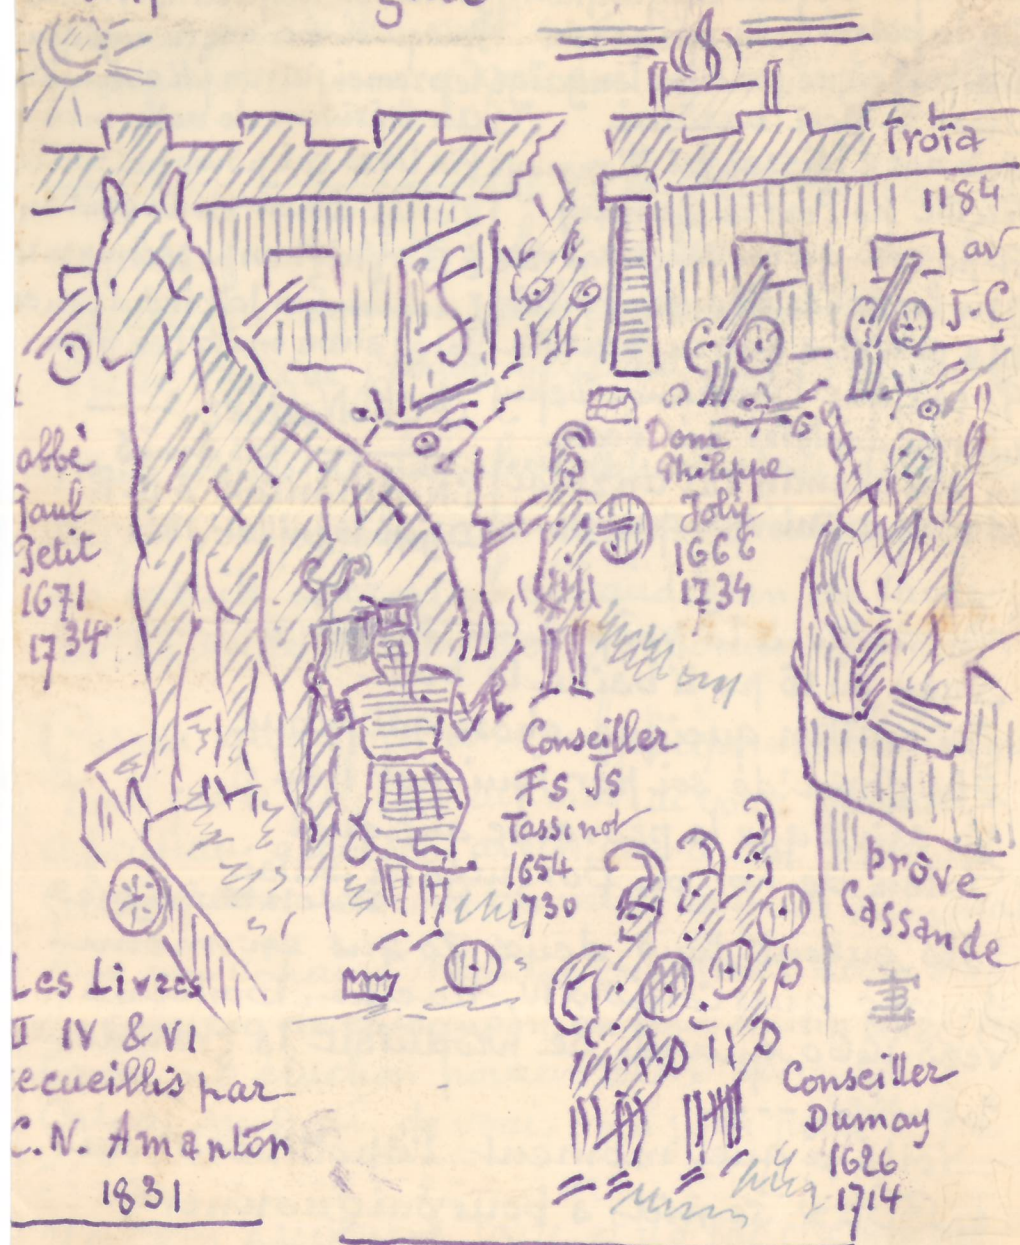 Troïa
1184
av
J-C
abbé
Paul
Petit
1671
1734
Dom
Philippe
Joly
1666
1734
Conseiller
FS. JS
Tassinot
1654
1730
prôve
Cassande
Les Livres
II IV & VI
recueillis par
C.N. Amanton
1831
Conseiller
Dumay
1626
1714